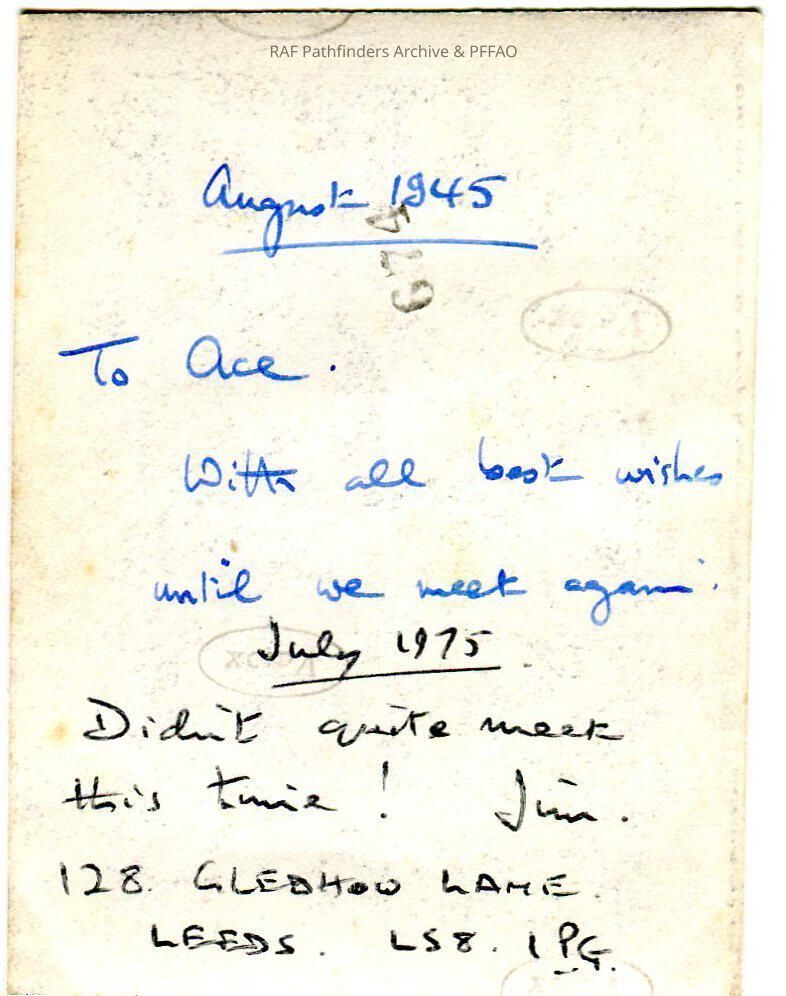 RAF Pathfinders Archive & PFFAO
August 1945
679
To Ace.
With all best wishes
until we meet again.
July 1975
VELOX
Didn't quite meet
this time! Jim.
128. GLEDHOW LANE.
LEEDS. LS8. 1PG.